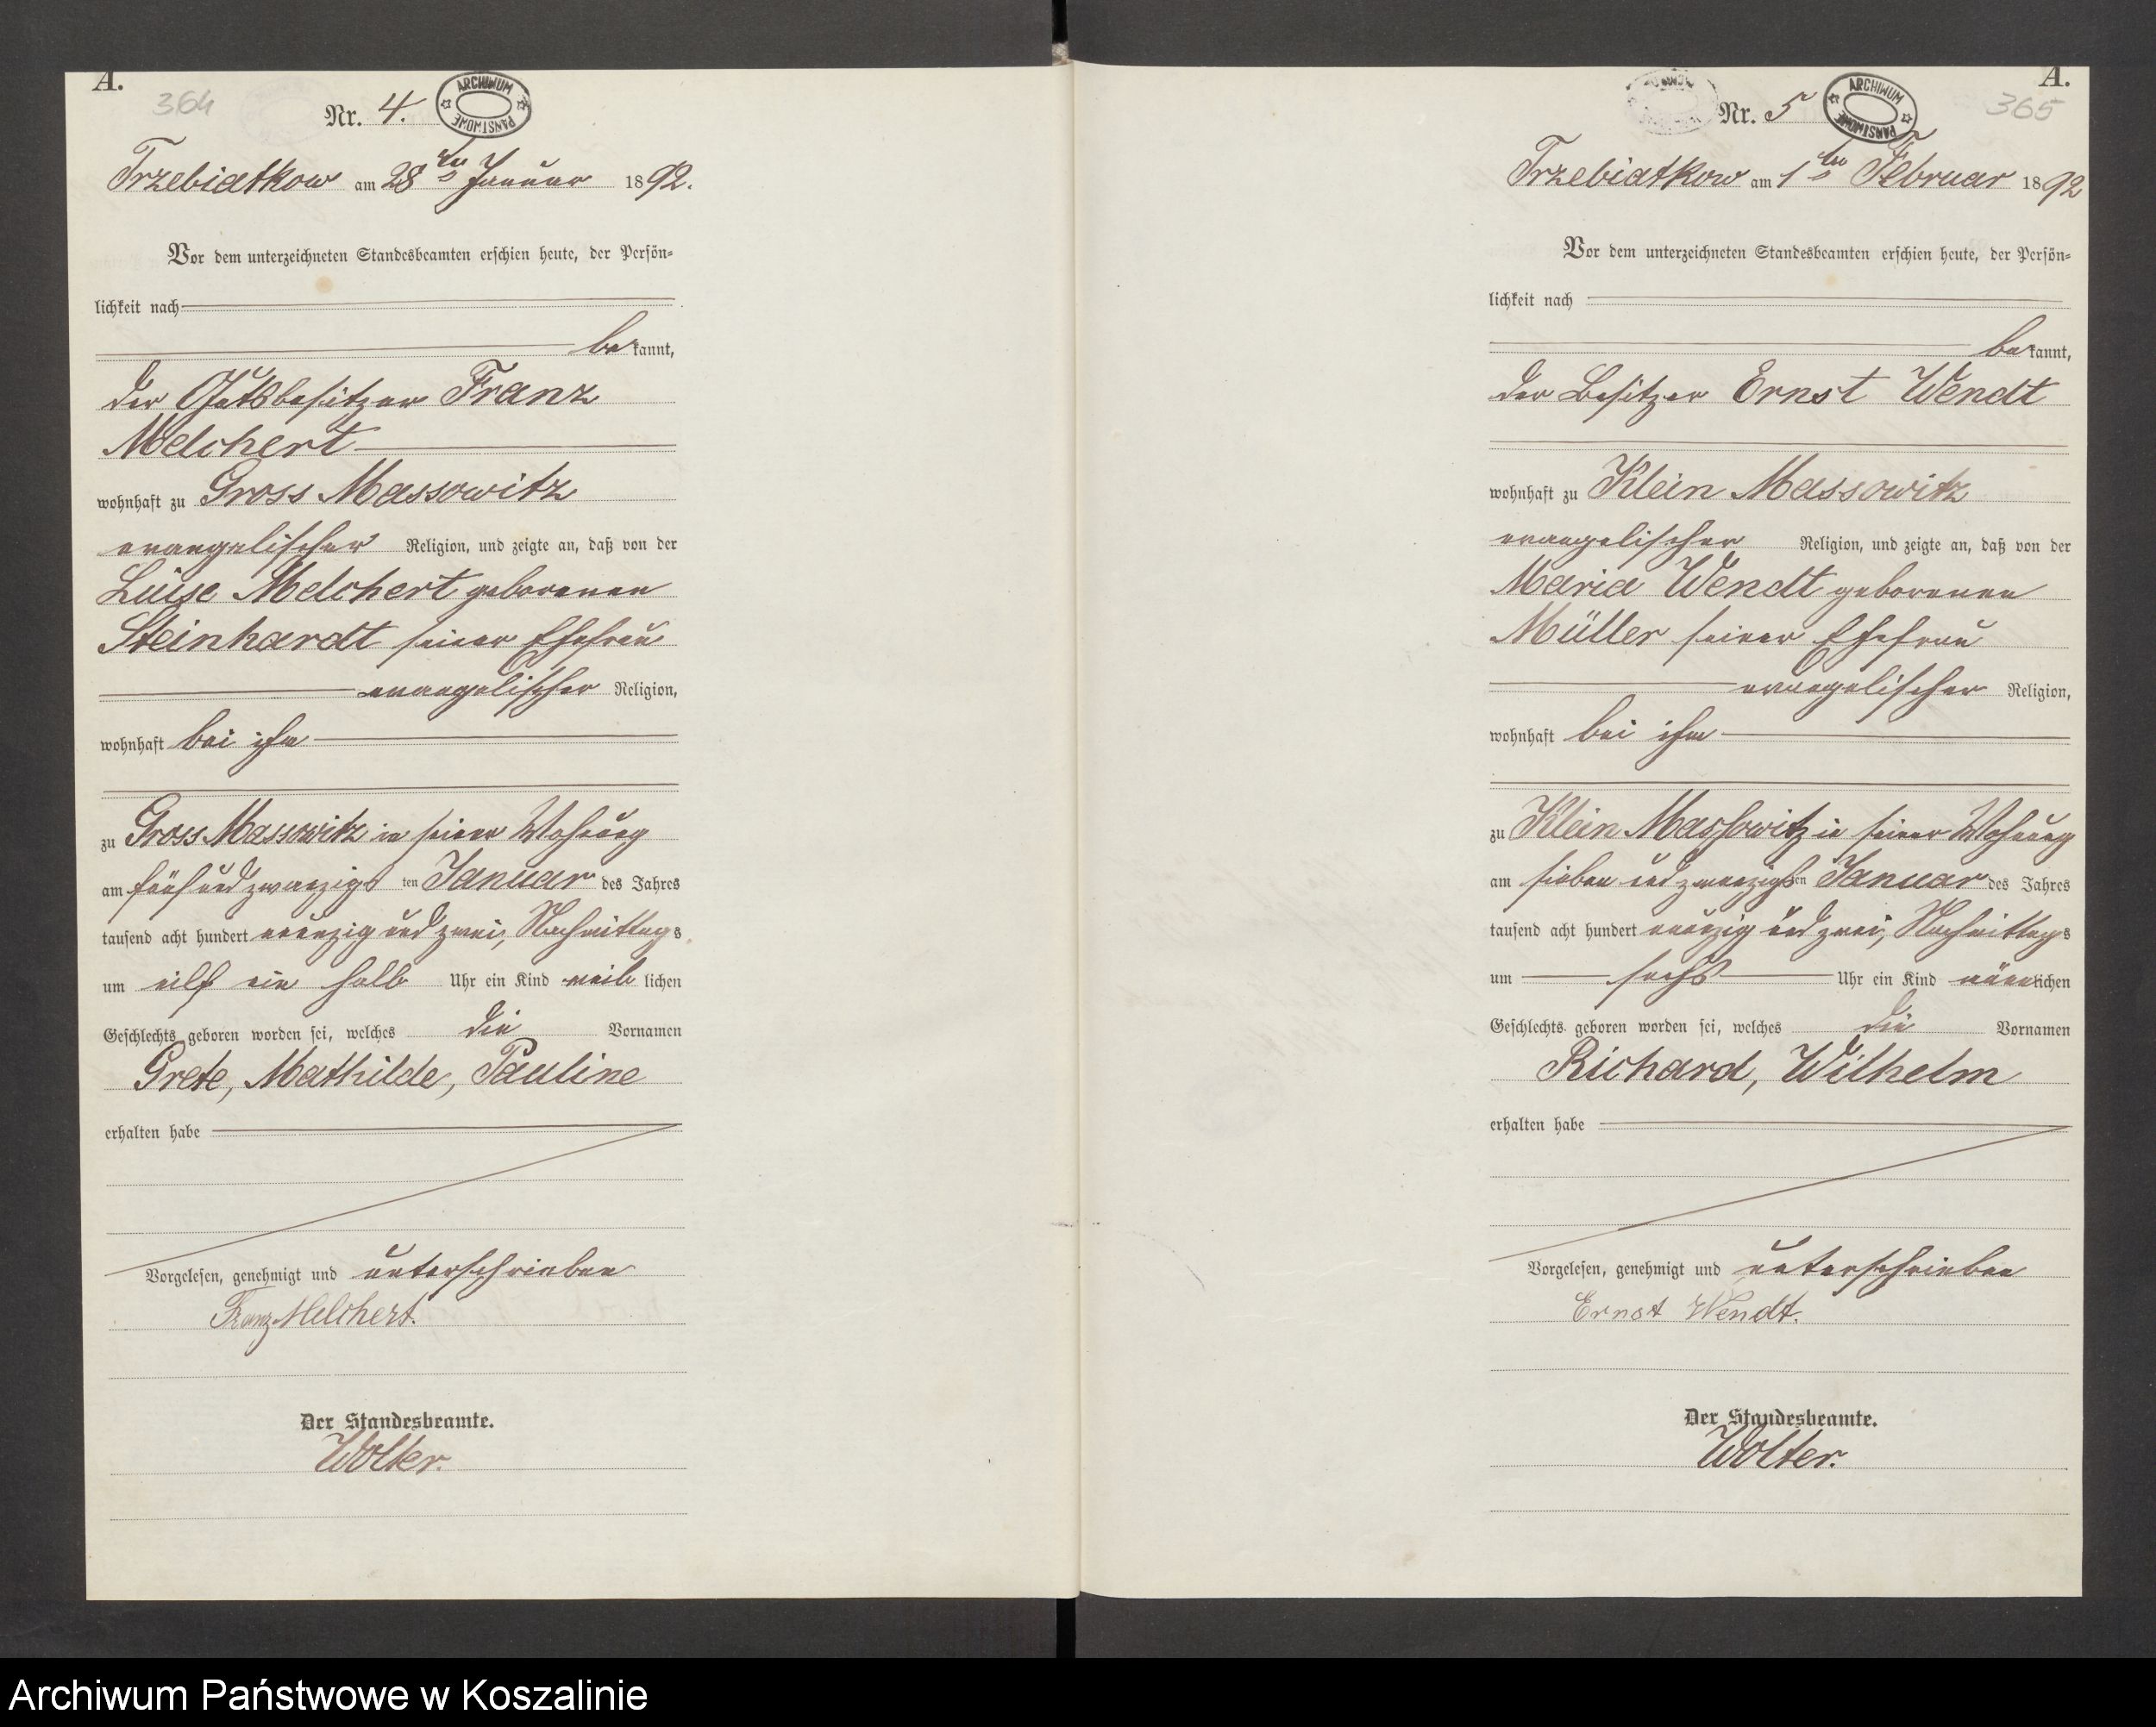 A.
364
Nr. 4.
ARCHIWUM PAŃSTWOWE
Trzebiatkow am 28ten Januar 1892.
Vor dem unterzeichneten Standesbeamten erschien heute, der Persön-
lichkeit nach
bekannt,
der Gutsbesitzer Franz
Melchert
wohnhaft zu Gross Massowitz
evangelischer Religion, und zeigte an, daß von der
Luise Melchert geborenen
Steinhardt seiner Ehefrau
evangelischer Religion,
wohnhaft bei ihm
zu Gross Massowitz in seiner Wohnung
am fünf und zwanzigsten Januar des Jahres
tausend acht hundert neunzig und zwei, Nachmittags
um eilf ein halb Uhr ein Kind weiblichen
Geschlechts geboren worden sei, welches die Vornamen
Grete, Mathilde, Pauline
erhalten habe
Vorgelesen, genehmigt und unterschrieben
Franz Melchert.
Der Standesbeamte.
Wolter.
A.
365
Nr. 5
ARCHIWUM PAŃSTWOWE
Trzebiatkow am 1ten Februar 1892
Vor dem unterzeichneten Standesbeamten erschien heute, der Persön-
lichkeit nach
bekannt,
der Besitzer Ernst Wendt
wohnhaft zu Klein Massowitz
evangelischer Religion, und zeigte an, daß von der
Maria Wendt geborenen
Müller seiner Ehefrau
evangelischer Religion,
wohnhaft bei ihm
zu Klein Massowitz in seiner Wohnung
am sieben und zwanzigsten Januar des Jahres
tausend acht hundert neunzig und zwei, Nachmittags
um sechs Uhr ein Kind männlichen
Geschlechts geboren worden sei, welches die Vornamen
Richard, Wilhelm
erhalten habe
Vorgelesen, genehmigt und unterschrieben
Ernst Wendt.
Der Standesbeamte.
Wolter.
Archiwum Państwowe w Koszalinie